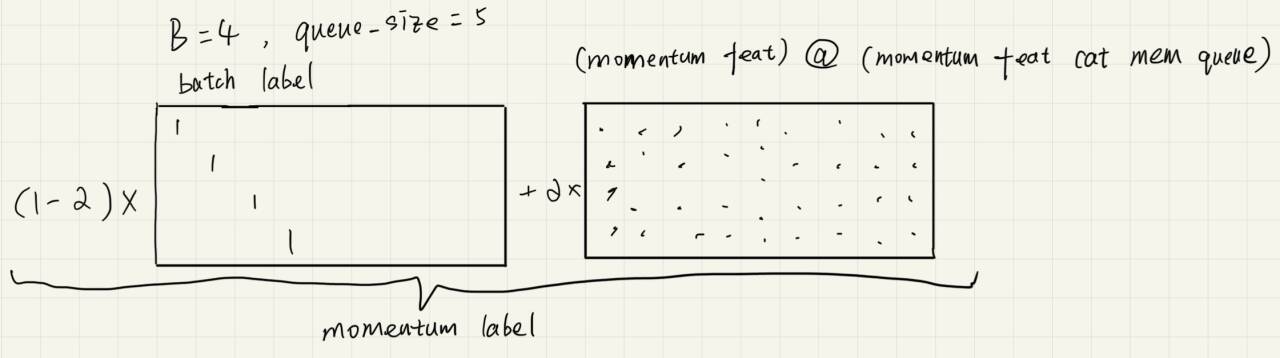 B = 4 , queue-size = 5
batch label
(momentum feat) @ (momentum feat cat mem queue)
1
1
1
1
(1-2)×
+2×
momentum label